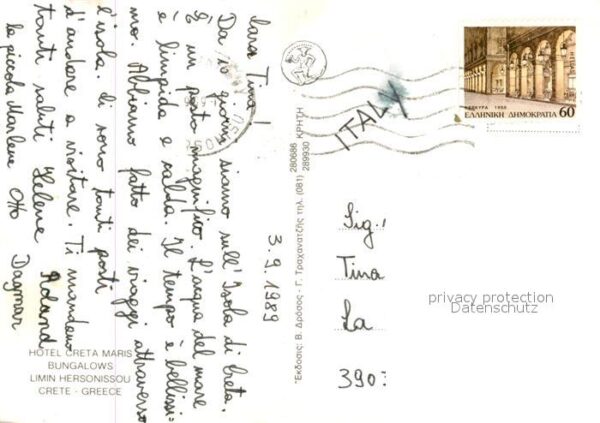 3.9.1989
Cara Tina!
Da 10 giorni siamo sull'Isola di Creta.
È un posto magnifico. L'acqua del mare
è limpida e calda. Il tempo è bellissi-
mo. Abbiamo fatto dei viaggi attraverso
l'isola. Ci sono tanti posti
d'andare a visitare. Ti mandano
tanti saluti Helene Roland
la piccola Marlene Otto Dagmar
HOTEL CRETA MARIS
BUNGALOWS
LIMIN HERSONISSOU
CRETE - GREECE
"Εκδοσις: Β. Δρόσος - Γ. Τραχανατζής τηλ. (081) 280686 289930 ΚΡΗΤΗ
ITALY
1988
ΕΛΛΗΝΙΚΗ ΔΗΜΟΚΡΑΤΙΑ 60
Sig.
Tina
La
390
privacy protection
Datenschutz